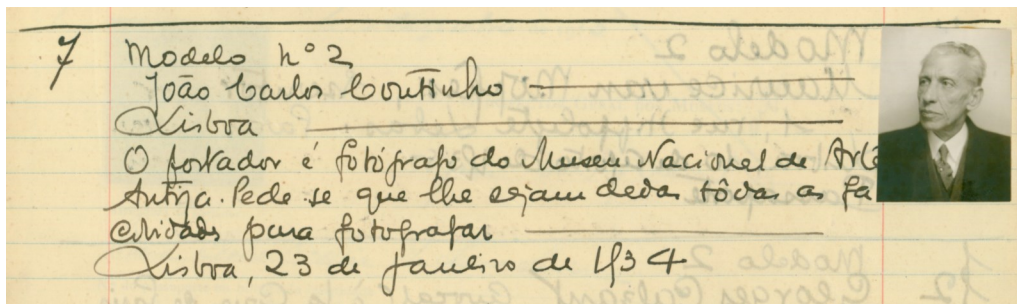 7 Modelo nº 2
João Carlos Coutinho
Lisboa
O portador é fotógrafo do Museu Nacional de Arte
Antiga. Pede-se que lhe sejam dadas tôdas as fa
cilidades para fotografar
Lisboa, 23 de Janeiro de 1934